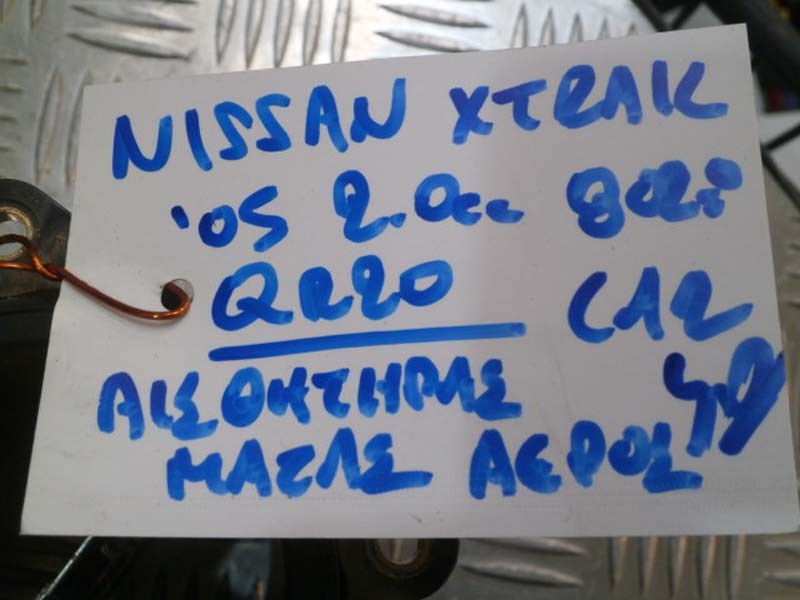 NISSAN XTRAIL
'05 2.0cc
QR20 CA2
ΑΙΣΘΗΤΗΡΑΣ
ΜΑΖΑΣ ΑΕΡΟΣ